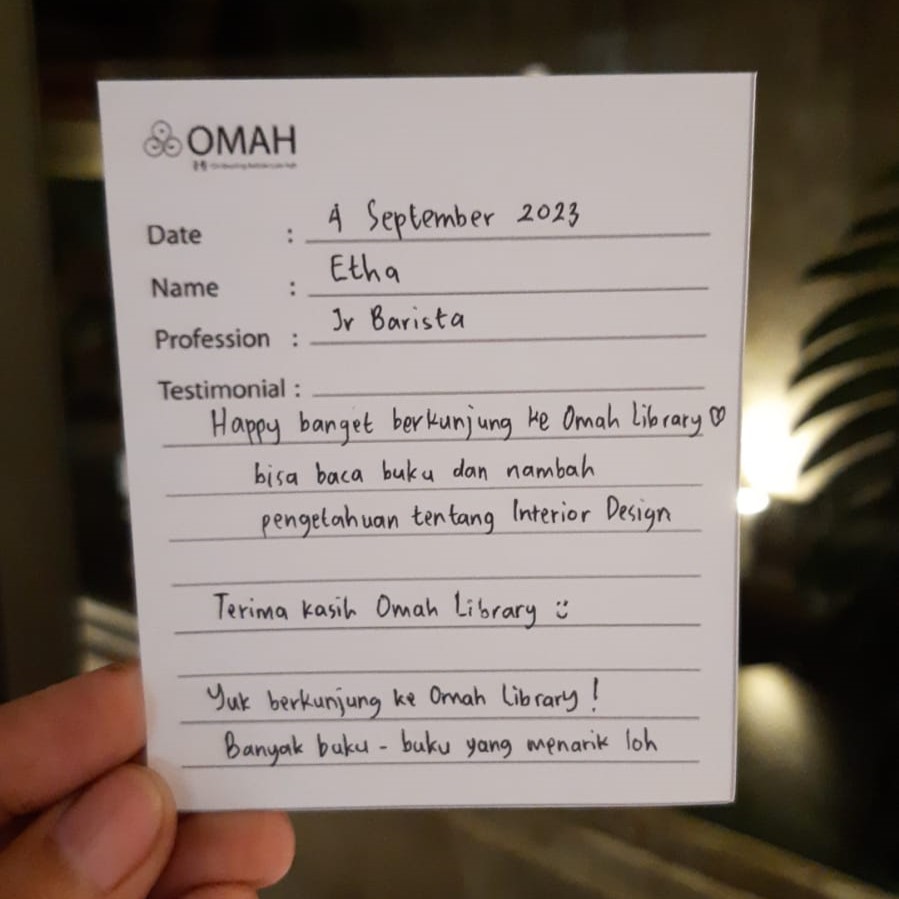 OMAH
Date : 4 September 2023
Name : Etha
Profession : Jr Barista
Testimonial :
Happy banget berkunjung ke Omah Library ♡
bisa baca buku dan nambah
pengetahuan tentang Interior Design
Terima kasih Omah Library :)
Yuk berkunjung ke Omah Library !
Banyak buku - buku yang menarik loh